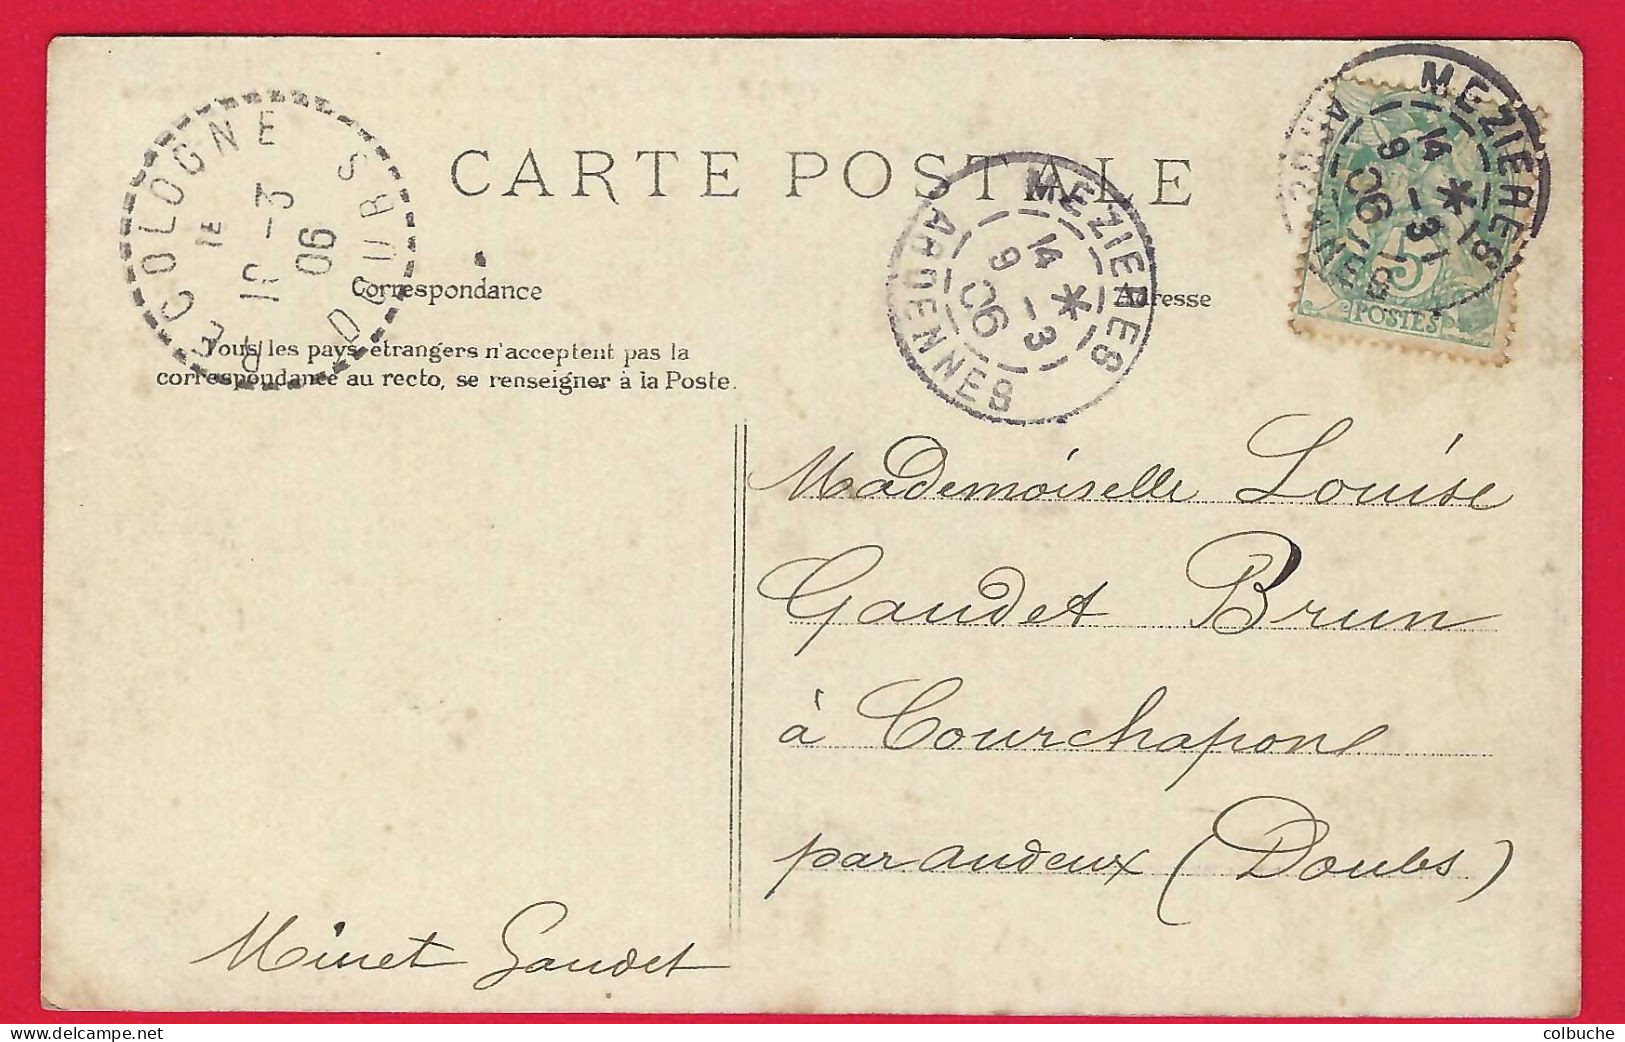 CARTE POSTALE
Correspondance
Adresse
Tous les pays étrangers n'acceptent pas la
correspondance au recto, se renseigner à la Poste.
RECOLOGNE
DOUBS
1E
10 -3
06
MEZIERES
14
9 -3
06
ARDENNES
MEZIERES
14
9 -3
06
ARDENNES
5
POSTES
Mademoiselle Louise
Gaudet Brun
à Courchapon
par Audeux (Doubs)
Minet Gaudet
colbuche